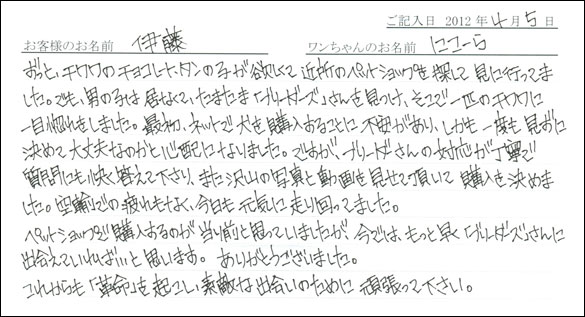 ご記入日 2012 年 4 月 5 日
お客様のお名前 伊藤 ワンちゃんのお名前 ににーら
ずっと、チワワのチョコレートタンの子が欲しくて 近所のペットショップを 探して 見に行ってま
した。でも、男の子は 居なくて、たまたま「ブリーダーズ」さんを見つけ、そこで一匹のチワワに
一目惚れをしました。最初、ネットで犬を購入することに 不安があり、しかも 一度も 見ずに
決めて 大丈夫なのかと心配になりました。ですが、ブリーダーさんの 対応が 丁寧で
質問にも快く答えて下さり、また沢山の写真と動画を見せて頂いて 購入を 決めま
した。空輸での疲れもなく、今日も 元気に 走り回ってました。
ペットショップで購入するのが 当り前と思っていましたが、今では、もっと早く「ブリーダーズ」さんに
出会えていればいいと思います。ありがとうございました。
これからも「革命」を起こし、素敵な出会いのために 頑張って下さい。